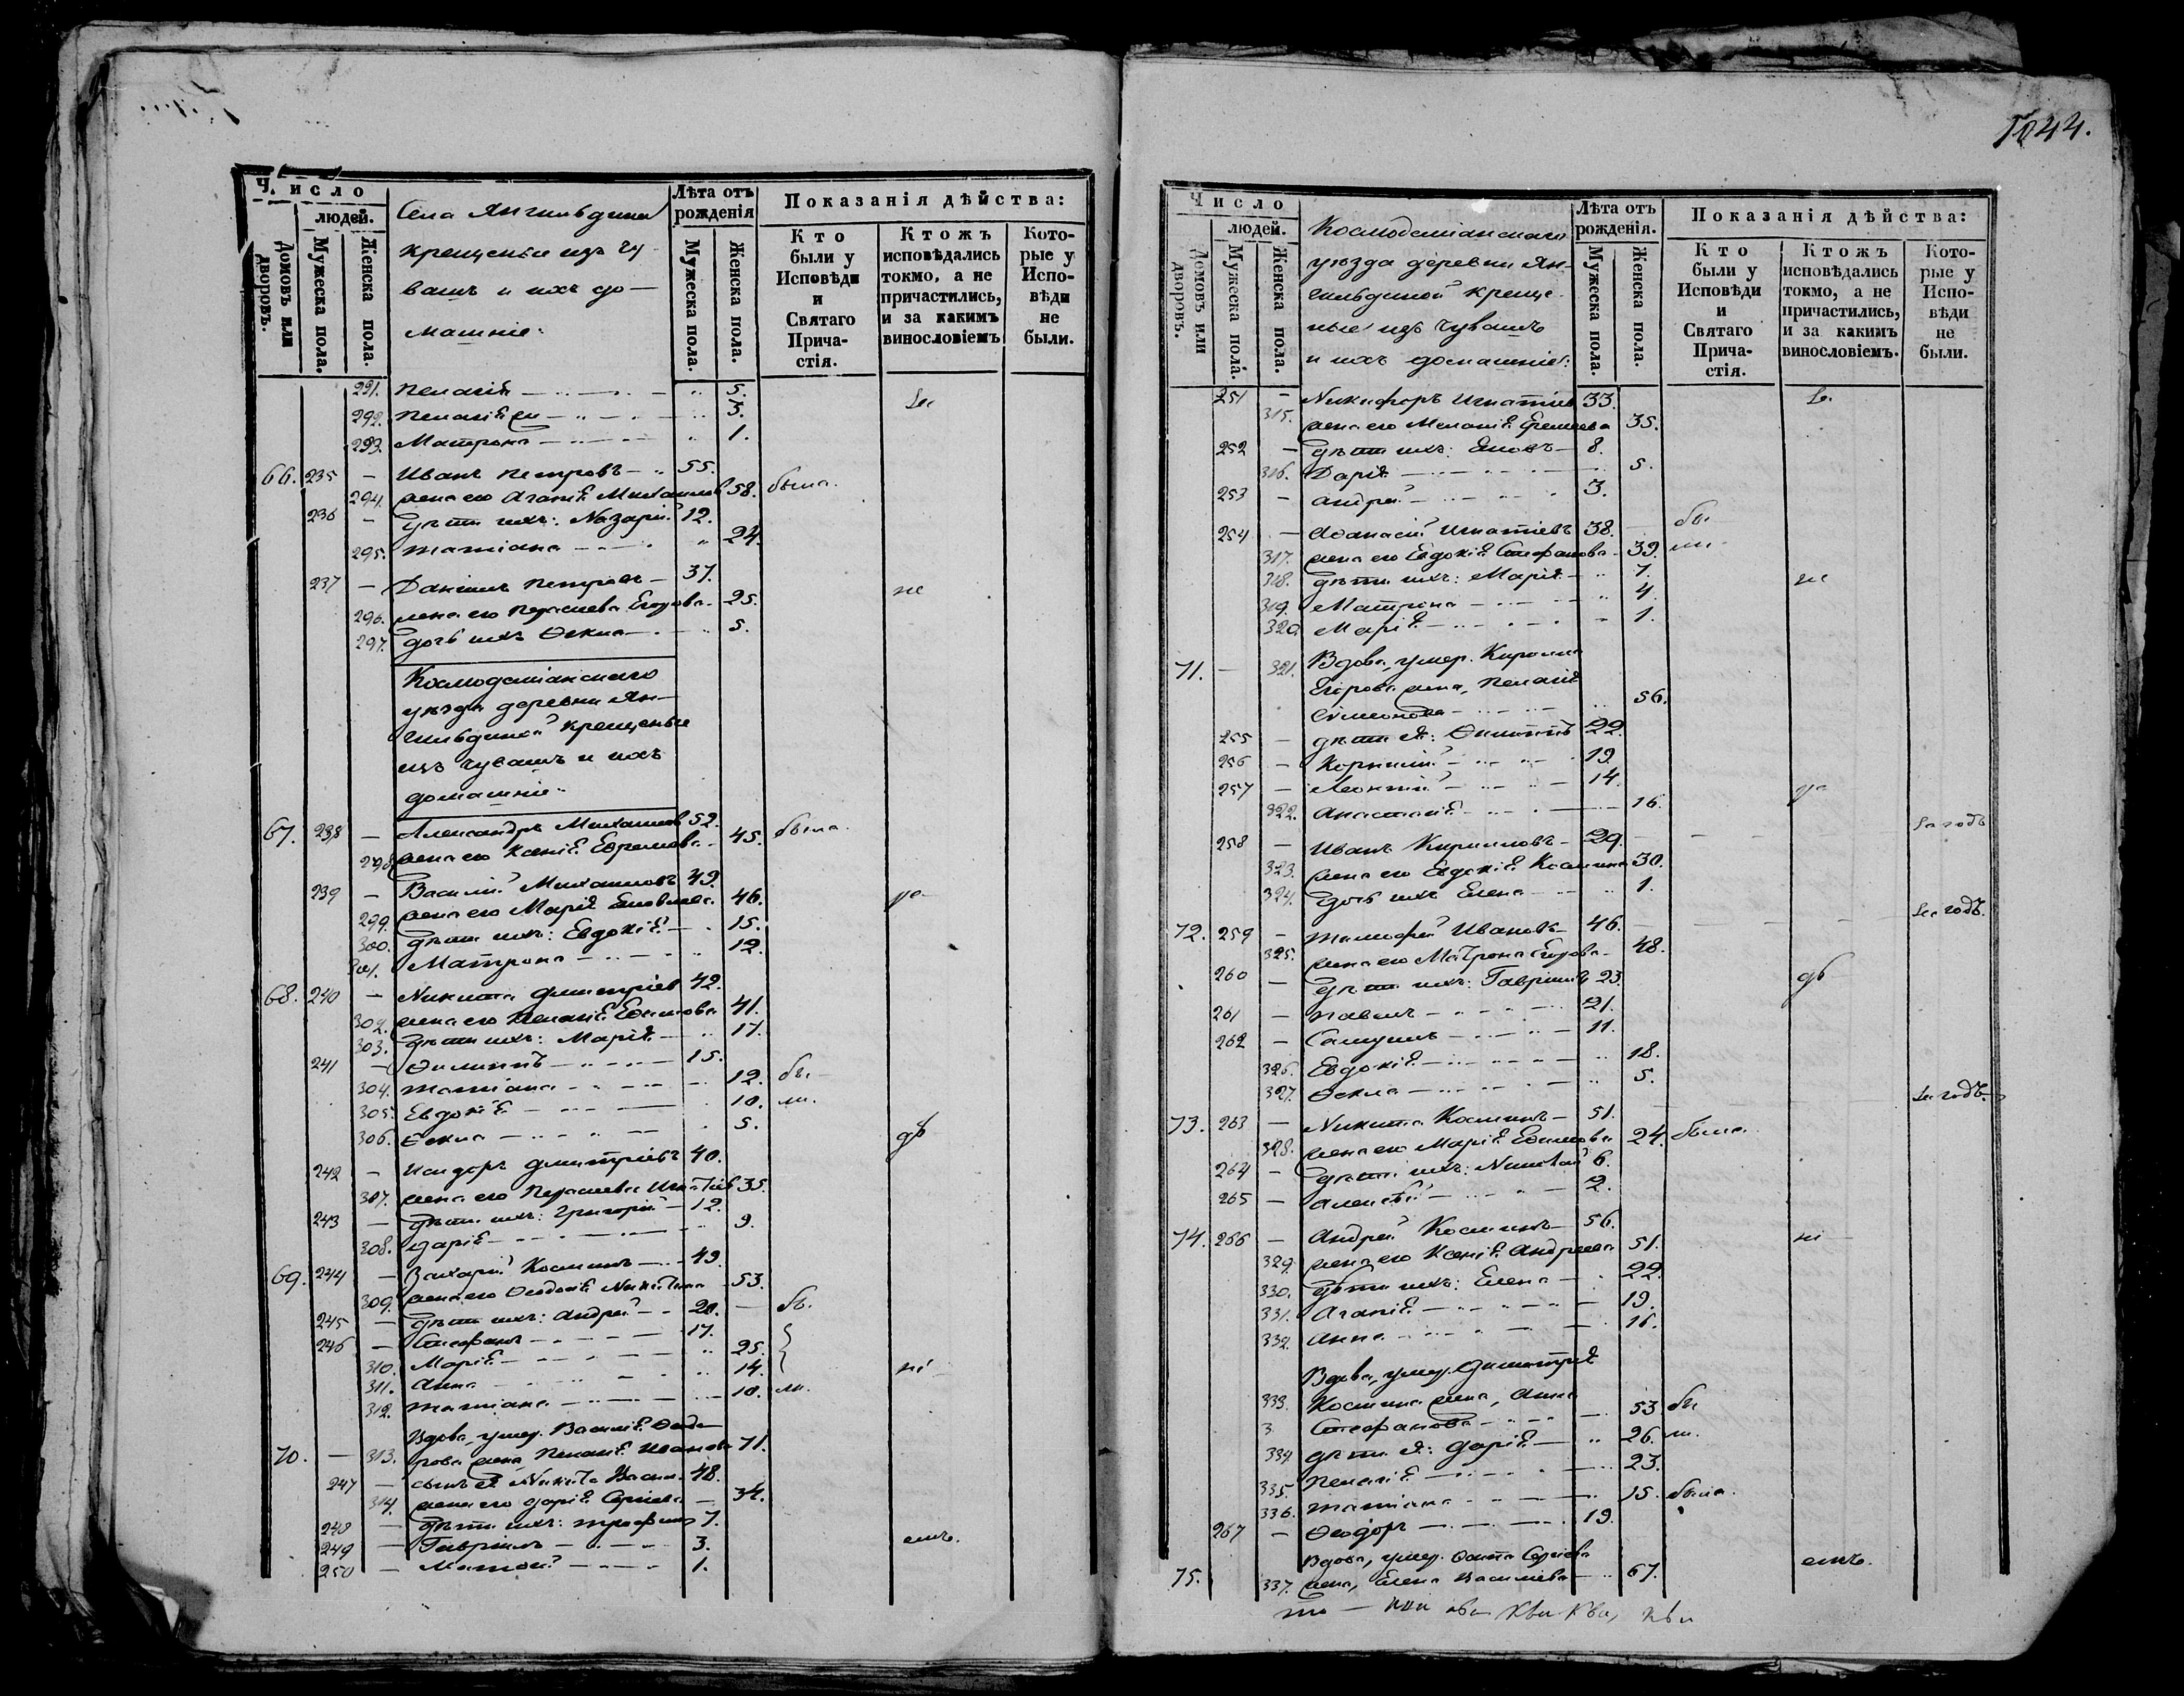 Число
людей.
Домовъ или дворовъ.
Мужеска пола.
Женска пола.
Села Янгильдина
крещеныи изъ чу-
вашъ и ихъ до-
машніе:
Лѣта отъ рожденія
Мужеска пола.
Женска пола.
Показанія дѣйства:
Кто были у Исповѣди и Святаго Прича-стія.
Ктожъ исповѣдались токмо, а не причастились, и за какимъ винословіемъ
Кото-рые у Испо-вѣди не были.
291. Пелагія 5.
292. Пелагія 3.
293. Матрона 1.
66. 235 — Иванъ Петровъ 55.
294. жена его Агапія Михаилова 58. была.
236 — дѣти ихъ: Назарій 12.
295. Татіана 24.
237 — Даніилъ Петровъ — 37. не
296. жена его Параскева Егорова 25.
297. дочь ихъ Ѳекла 5.
Космодеміанскаго
уѣзда деревни Ян-
гильдиной крещеные
изъ чувашъ и ихъ
домашніе:
67. 238 — Александръ Михаиловъ 52. была.
298 жена его Ксенія Ефремова 45.
239 — Василій Михаиловъ 49.
299. жена его Марія 46.
300. дѣти ихъ: Евдокія 15.
301. Матрона 12.
68. 240 — Никита Димитріевъ 42.
302. жена его Пелагія Ефимова 41.
303. дѣти ихъ: Марія 17.
241 — Филиппъ 15.
304. Татіана 12. бы-
305. Евдокія 10. ли.
306. Ѳекла 5.
242 — Исидоръ Димитріевъ 40.
307. жена его Параскева Игнатіева 35.
243 — дѣти ихъ: Григорій 12.
308. Дарія 9.
69. 244 — Захарій Косминъ 49.
309. жена его Ѳеодосія Никитина 53.
245 — дѣти ихъ: Андрей 20. бы-
246 — Стефанъ 17.
310. Марія 25.
311. Анна 14.
312. Татіана 10. ли.
Вдова, умер. Василія Ѳеодо-
70. — 313. рова жена, Пелагія Иванова 71.
247 — сынъ ея Никита Васил. 48.
314. жена его Дарія Сергіева 34.
248 — дѣти ихъ: Трофимъ 7.
249 — Гавріилъ 3.
250 — Матѳей 1.
1044.
Число
людей.
Домовъ или дворовъ.
Мужеска пола.
Женска пола.
Космодеміанскаго
уѣзда деревни Ян-
гильдиной креще-
ные изъ чувашъ
и ихъ домашніе:
Лѣта отъ рожденія.
Мужеска пола.
Женска пола.
Показанія дѣйства:
Кто были у Исповѣди и Святаго Прича-стія.
Ктожъ исповѣдались токмо, а не причастились, и за какимъ винословіемъ.
Кото-рые у Испо-вѣди не были.
251 — Никифоръ Игнатіевъ 33.
315. жена его Меланія 35.
252 — дѣти ихъ: 8.
316. Дарія 5.
253 — Андрей 3.
254 — Аѳанасій Игнатіевъ 38. бы-
317. жена его Евдокія Стефанова 39. ли.
318. дѣти ихъ: Марія 7.
319. Матрона 4.
320. Марія 1.
71. — 321. Вдова, умер. Кирилла
Егорова жена, Пелагія
Симеонова 56.
255 — дѣти ея: Филиппъ 22.
256 — Корнилій 19.
257 — Леонтій 14.
322. Анастасія 16.
258 — Иванъ Кирилловъ 29.
323. жена его Евдокія Космина 30.
324. дочь ихъ Елена 1.
72. 259 — Тимофей Ивановъ 46.
325. жена его Матрона Егорова 48.
260 — дѣти ихъ: Гавріилъ 23.
261 — Павелъ 21.
262 — Самуилъ 11.
326. Евдокія 18.
327. Ѳекла 5.
73. 263 — Никита Косминъ 51.
328. жена его Марія Ефимова 24. была.
264 — дѣти ихъ: Николай 6.
265 — Алексѣй 2.
74. 266 — Андрей Косминъ 56.
329. жена его Ксенія Андреева 51.
330. дѣти ихъ: Елена 22.
331. Агапія 19.
332. Анна 16.
Вдова, умер. Димитрія
333. Космина жена, Анна
Стефанова 53 бы
334. дѣти ея: Дарія 26. ли.
335. Пелагія 23.
336. Татіана 15. была.
267 — Ѳеодоръ 19.
Вдова, умер. Сергіева
75. 337. жена, Елена Василіева 67.